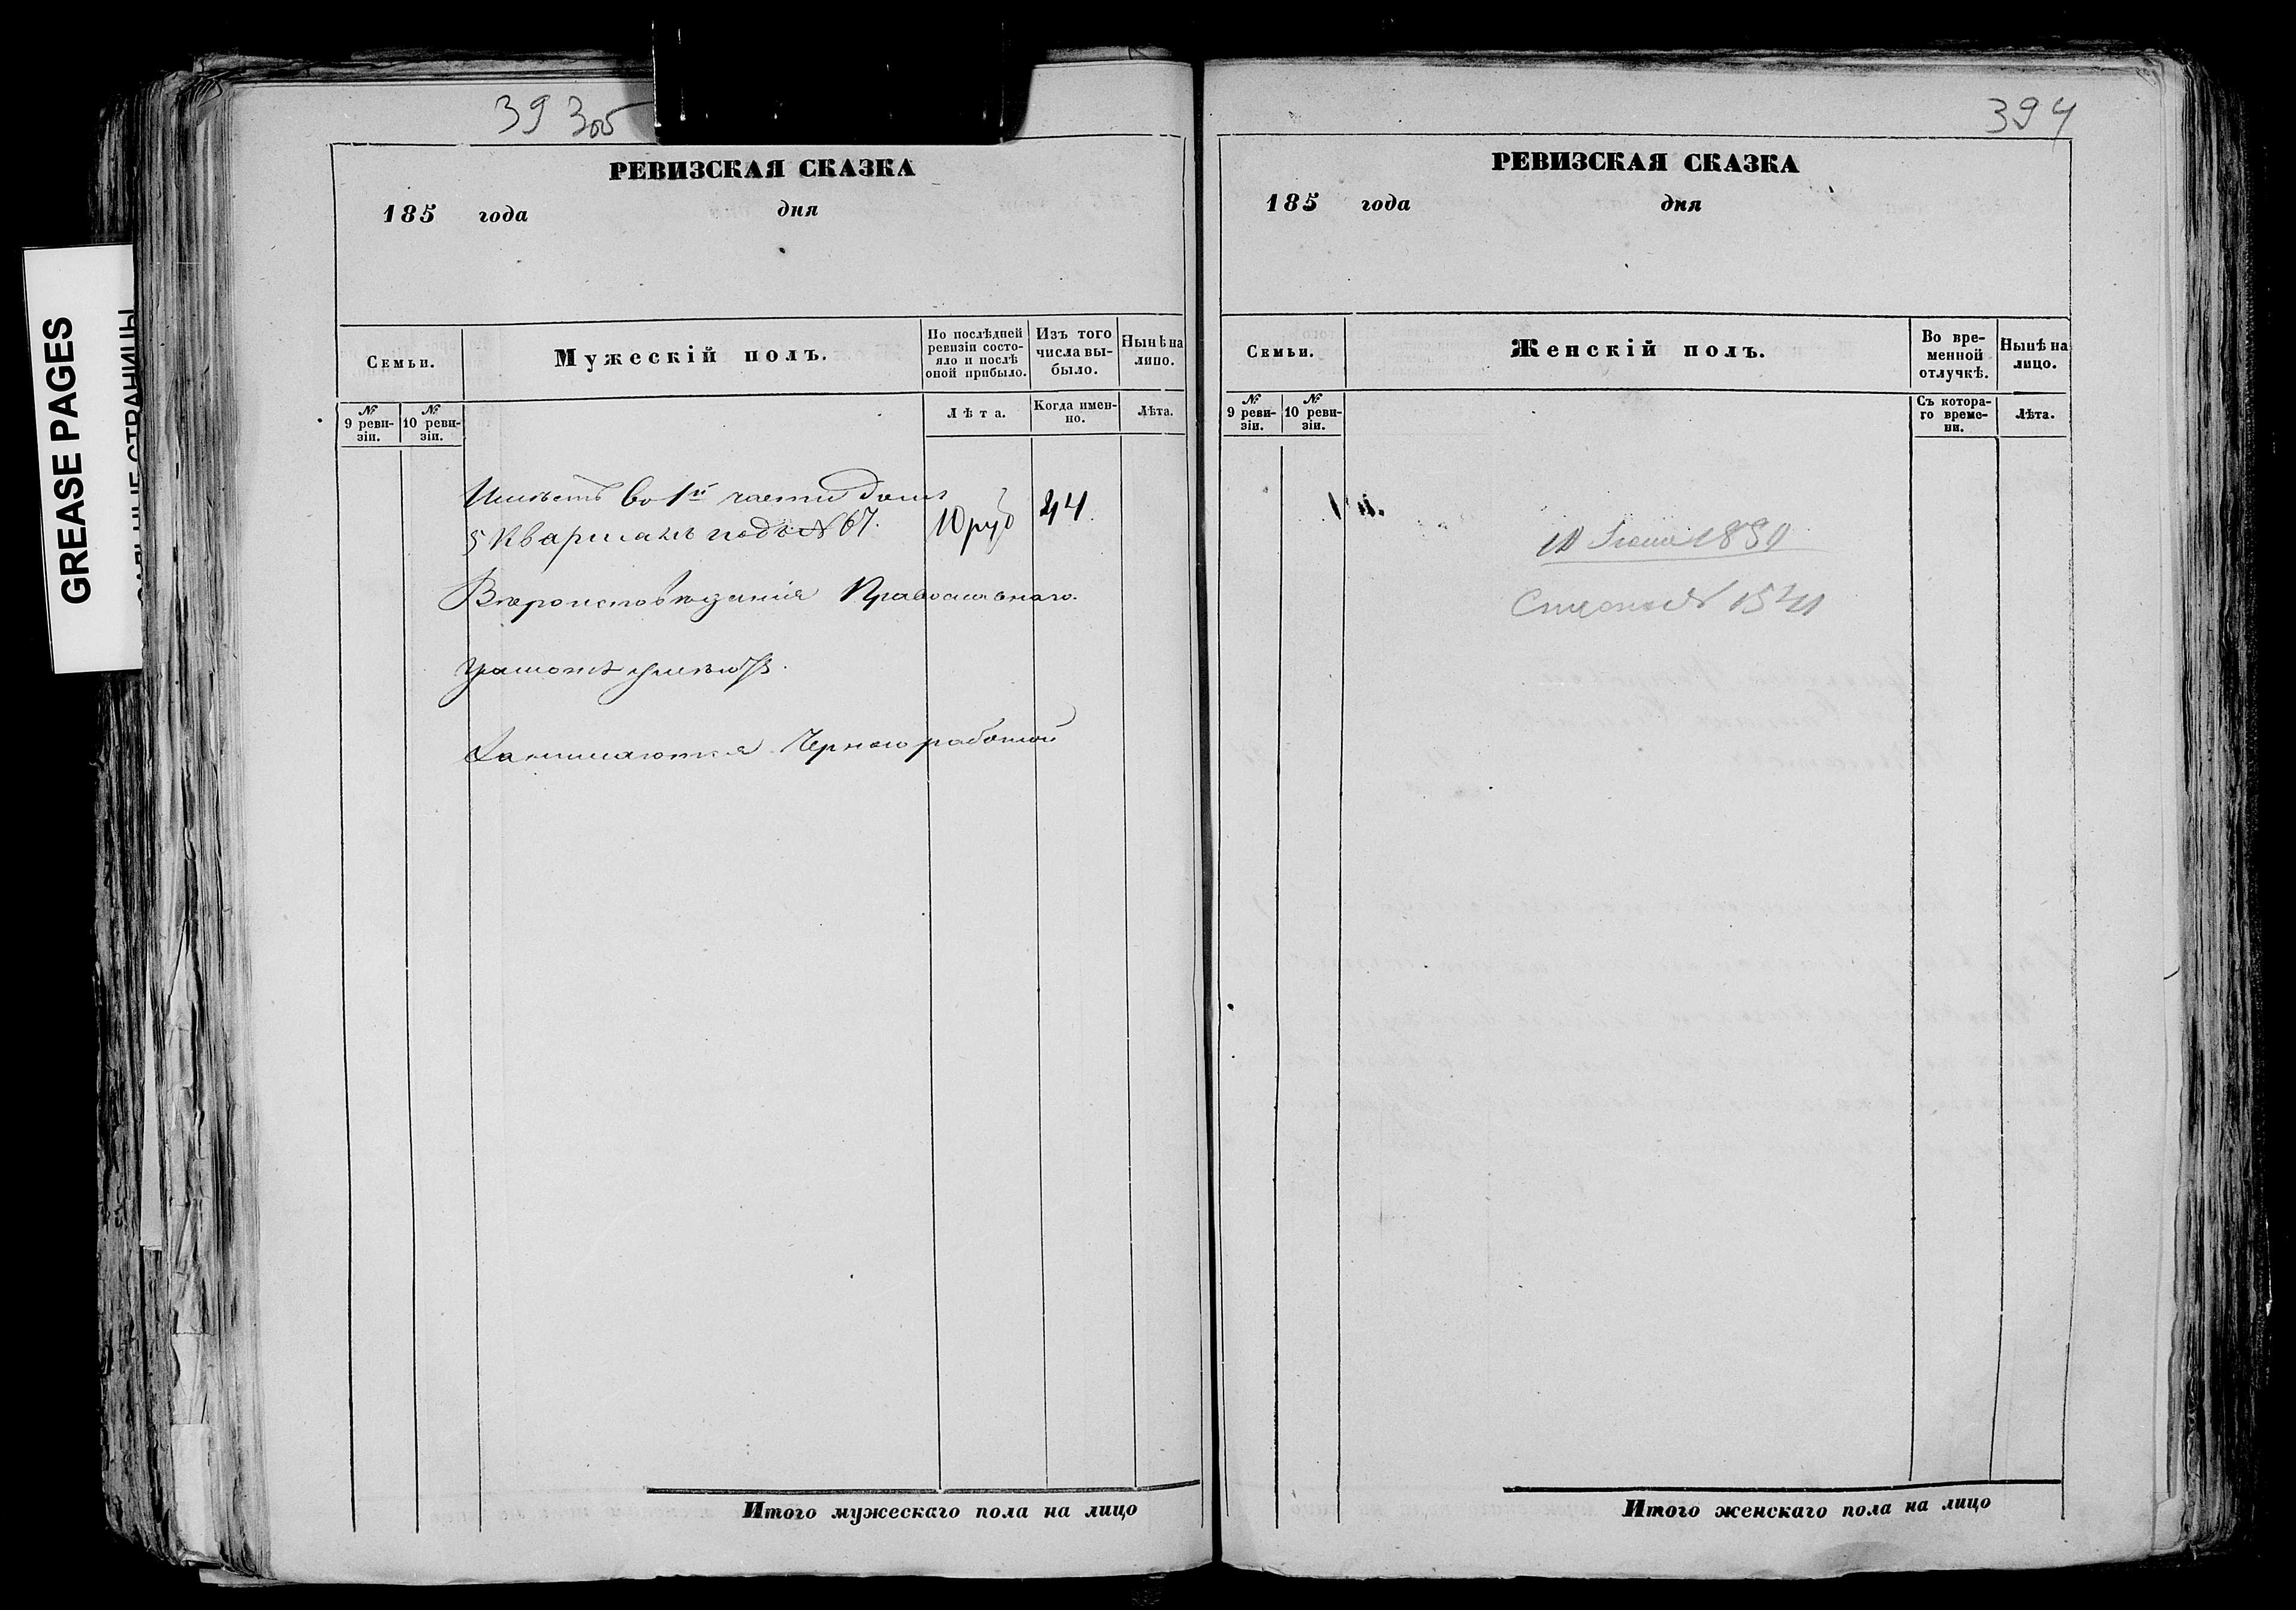 393об
РЕВИЗСКАЯ СКАЗКА
185 года дня
Семьи.
Мужескій полъ.
По послѣдней ревизіи состо-
яло и послѣ
оной прибыло.
Изъ того
числа вы-
было.
Нынѣ на
лицо.
№
9 реви-
зіи.
№
10 реви-
зіи.
Лѣта.
Когда имен-
но.
Лѣта.
Имѣетъ во 1й части домъ
5 Квартала подъ № 67. 10 руб 44.
Вѣроисповѣданія Православнаго.
Грамотѣ
Занимаются Черною работой
Итого мужескаго пола на лицо
394
РЕВИЗСКАЯ СКАЗКА
185 года дня
Семьи.
Женскій полъ.
Во вре-
менной
отлучкѣ.
Нынѣ на
лицо.
№
9 реви-
зіи.
№
10 реви-
зіи.
Съ котора-
го време-
ни.
Лѣта.
Итого женскаго пола на лицо
GREASE PAGES